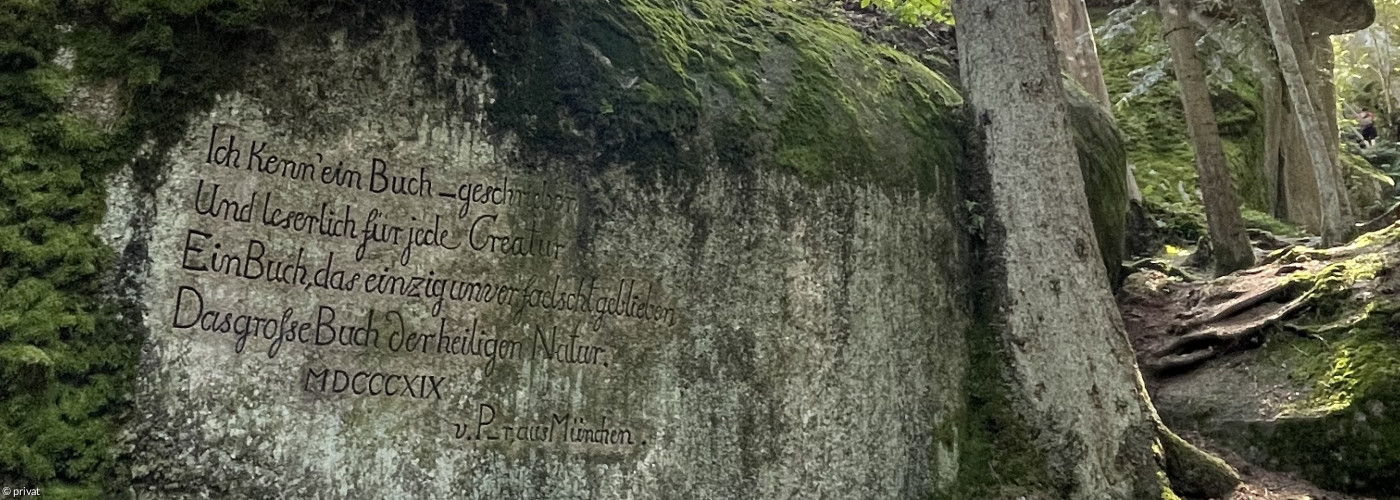 Ich Kenn' ein Buch – geschrieben
Und leserlich für jede Creatur
Ein Buch, das einzig unverfaelscht geblieben
Das große Buch der heiligen Natur.
MDCCCXIX
v. P–r, aus München.
© privat